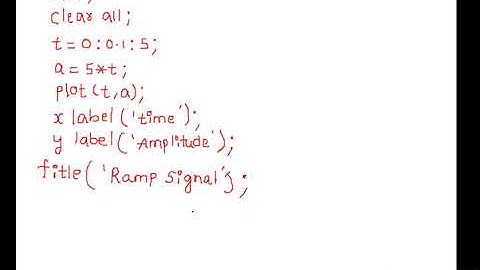 clear all;
t = 0:0.1:5;
a = 5*t;
plot(t,a);
x label('time');
y label('Amplitude');
title('Ramp signal');